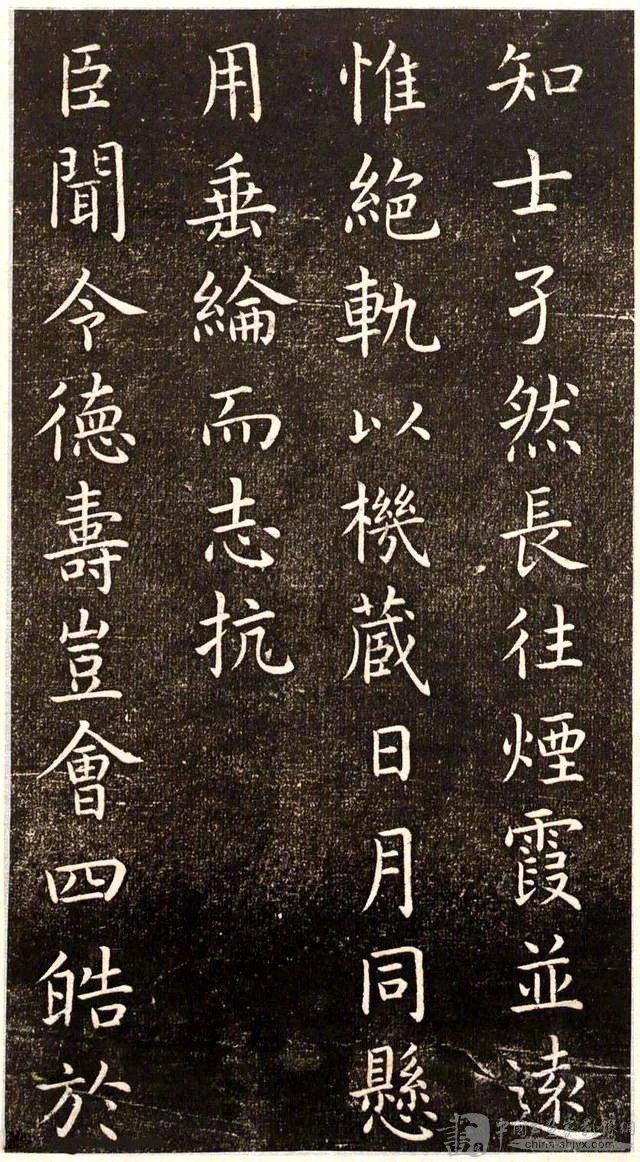 知士孑然長往煙霞並遠
惟絕軌以機蔵日月同懸
用垂綸而志抗
臣聞令德壽豈會四皓於
china-shjyx.com